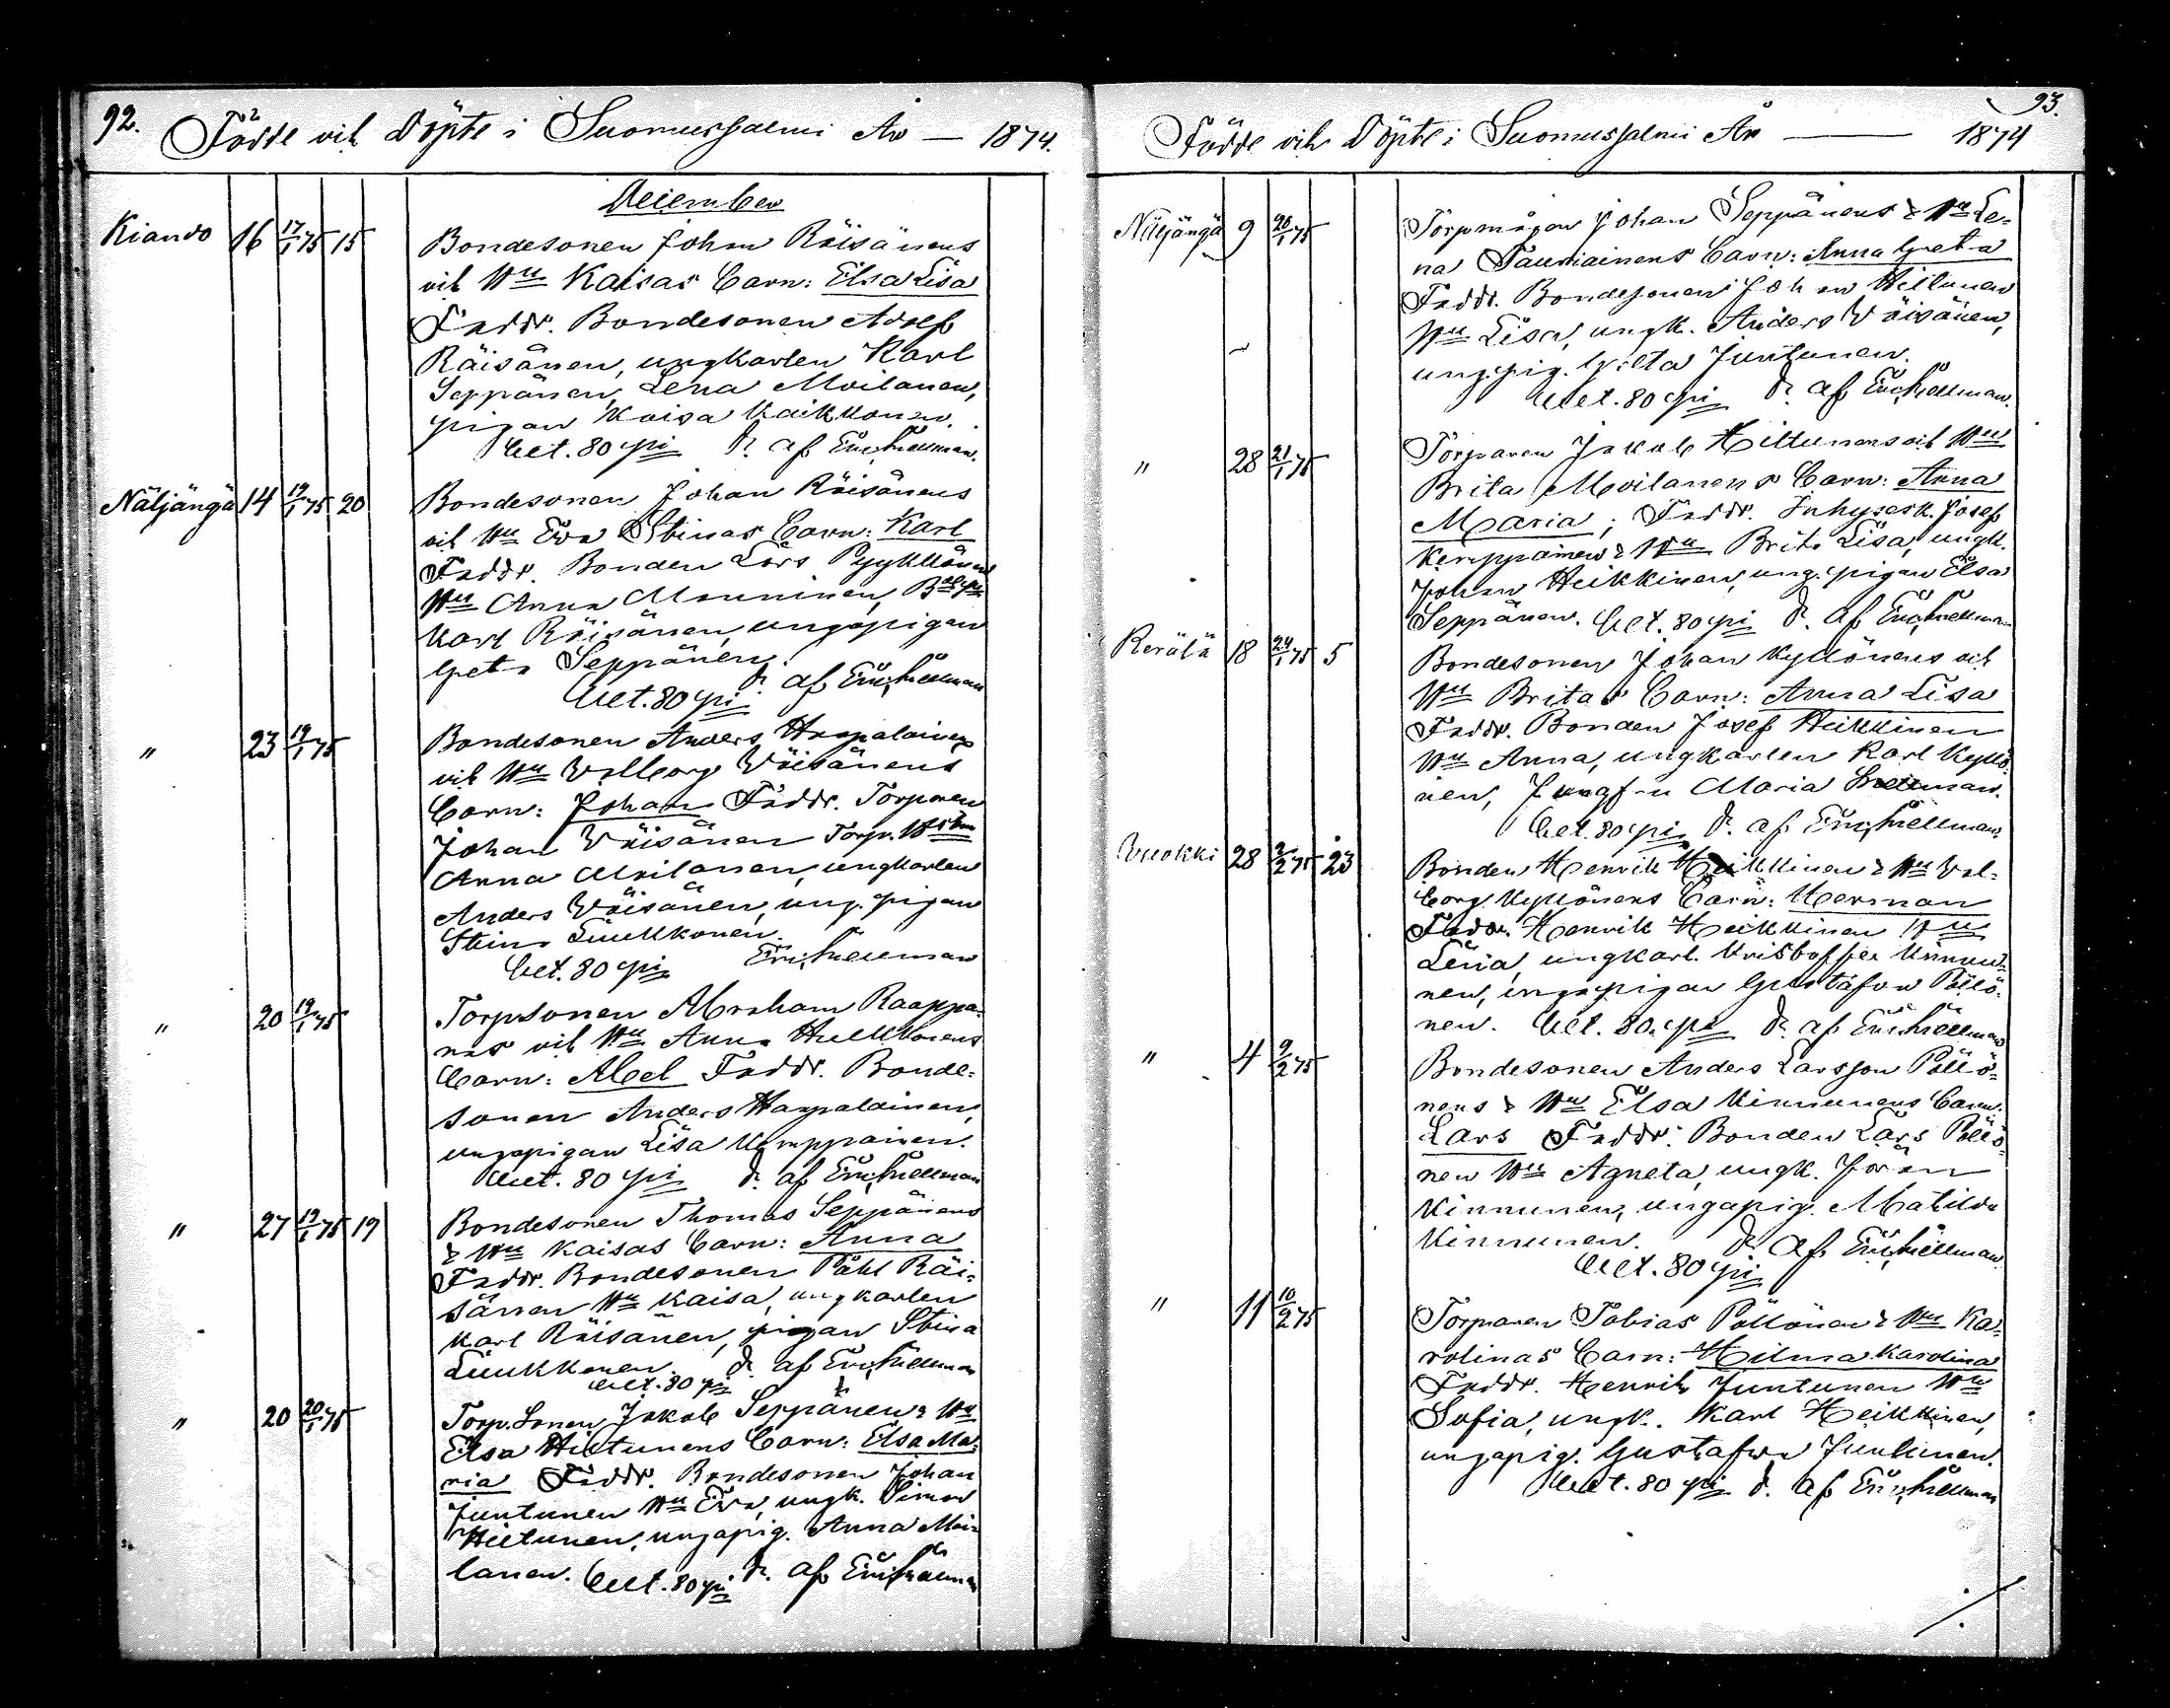 92.
Födde och Döpte i Suomussalmi År — 1874.
December
Kiando 16 17/1 75 15 Bondesonen Johan Räisänens
och Hu Kaisas barn: Elsa Lisa
Faddr. Bondesonen Adolf
Räisänen, ungkarlen Karl
Seppänen, Lena Moilanen,
pigan Kaisa Kaikkonen.
Aet. 80 pi D. af Eric Snellman.
Näljängä 14 19/1 75 20 Bondesonen Johan Räisänens
och Hu Eva Stinas Barn: Karl
Faddr. Bonden Lars Pyykkönen
Hu Anna Manninen,
Karl Räisänen, unga pigan
Greta Seppänen.
Aet. 80 pi D. af Eric Snellman
" 23 19/1 75 Bondesonen Anders Haapalainens
och Hu Walborg Väisänens
barn: Johan Faddr. Torparen
Johan Väisänen Torp.
Anna Moilanen, ungkarlen
Anders Väisänen, ung. pigan
Stina Luukkonen.
Aet. 80 pi Eric Snellman
" 20 19/1 75 Torpsonen Abraham Raappa-
nas och Hu Anna Hulkkonens
barn: Abel Faddr. Bonde-
sonen Anders Haapalainen,
unga pigan Lisa Kemppainen.
Aet. 80 pi D. af Eric Snellman
" 27 19/1 75 19 Bondesonen Thomas Seppänens
& Hu Kaisas barn: Anna
Faddr. Bondesonen Påhl Räi-
sänen Hu Kaisa, ungkarlen
Karl Räisänen, pigan Stina
Luukkonen. D. af Eric Snellman
Aet. 80 pi
" 20 20/1 75 Torp. Sonen Jakob Seppänen & Hu
Elsa Hiltunens Barn: Elsa Ma-
ria Faddr. Bondesonen Johan
Juntunen Hu Eva, ungk. Simon
Hiltunen, unga pig. Anna Moi-
lanen. Aet. 80 pi D. af Eric Snellman
93.
Födde och Döpte i Suomussalmi År — 1874
Näljängä 9 20/1 75 Torpmågen Johan Seppänens & Hu Le-
na Tauriainens barn: Anna Greta
Faddr. Bondesonen Johan Hiltunen
Hu Lisa, ungk. Anders Väisänen,
ung. pig. Greta Juntunen.
Aet. 80 pi D. af Eric Snellman.
" 28 21/1 75 Torparen Jakob Hiltunens och Hu
Brita Moilanens Barn: Anna
Maria; Faddr. Inhysesk. Josef
Kemppainen & Hu Brita Lisa, ungk.
Johan Heikkinen, ung. pigan Elsa
Seppänen. Aet. 80 pi D. af Eric Snellman
Kerälä 18 24/1 75 5 Bondesonen Johan Kyllönens och
Hu Britas barn: Anna Lisa
Faddr. Bonden Josef Heikkinen
Hu Anna, ungkarlen Karl Kyllö-
nen, Jungfru Maria Snellman.
Aet. 80 pi D. af Eric Snellman.
Vuokki 28 2/2 75 23 Bonden Henrik Heikkinen & Hu Val-
borg Kyllönens Barn: Herman
Faddr. Henrik Heikkinen Hu
Lena, ungkarl. Kristoffer Kinnu-
nen, unga pigan Gustafva Pöllö-
nen. Aet. 80 pi D. af Eric Snellman
" 4 9/2 75 Bondesonen Anders Larsson Pöllö-
nens & Hu Elsa Kinnunens barn:
Lars Faddr. Bonden Lars Pöllö-
nen Hu Agneta, ungk. Jöran
Kinnunen, unga pig. Matilda
Kinnunen. D. af Eric Snellman
Aet. 80 pi
" 11 10/2 75 Torparen Tobias Pöllönen & Hu Ka-
rolinas barn: Hilma Karolina
Faddr. Henrik Juntunen Hu
Sofia, ungk. Karl Heikkinen,
unga pig. Gustafva Juntunen.
Aet. 80 pi D. af Eric Snellman